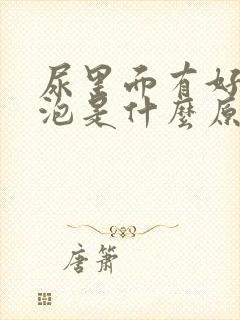 尿里面有好
泡是什麼原
唐箫